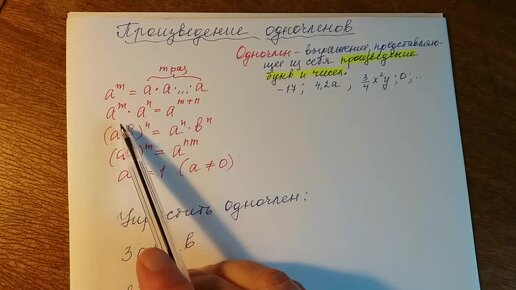 Произведение одночленов
Одночлен - выражение, представляю-
щее из себя произведение
букв и чисел.
-17; 4,2a, 3/4 x²y; 0; ...
m раз
aᵐ = a · a · ... · a
aᵐ · aⁿ = aᵐ⁺ⁿ
)ⁿ = aⁿ · bⁿ
)ᵐ = aⁿᵐ
a = 1 (a ≠ 0)
одночлен:
3 . b